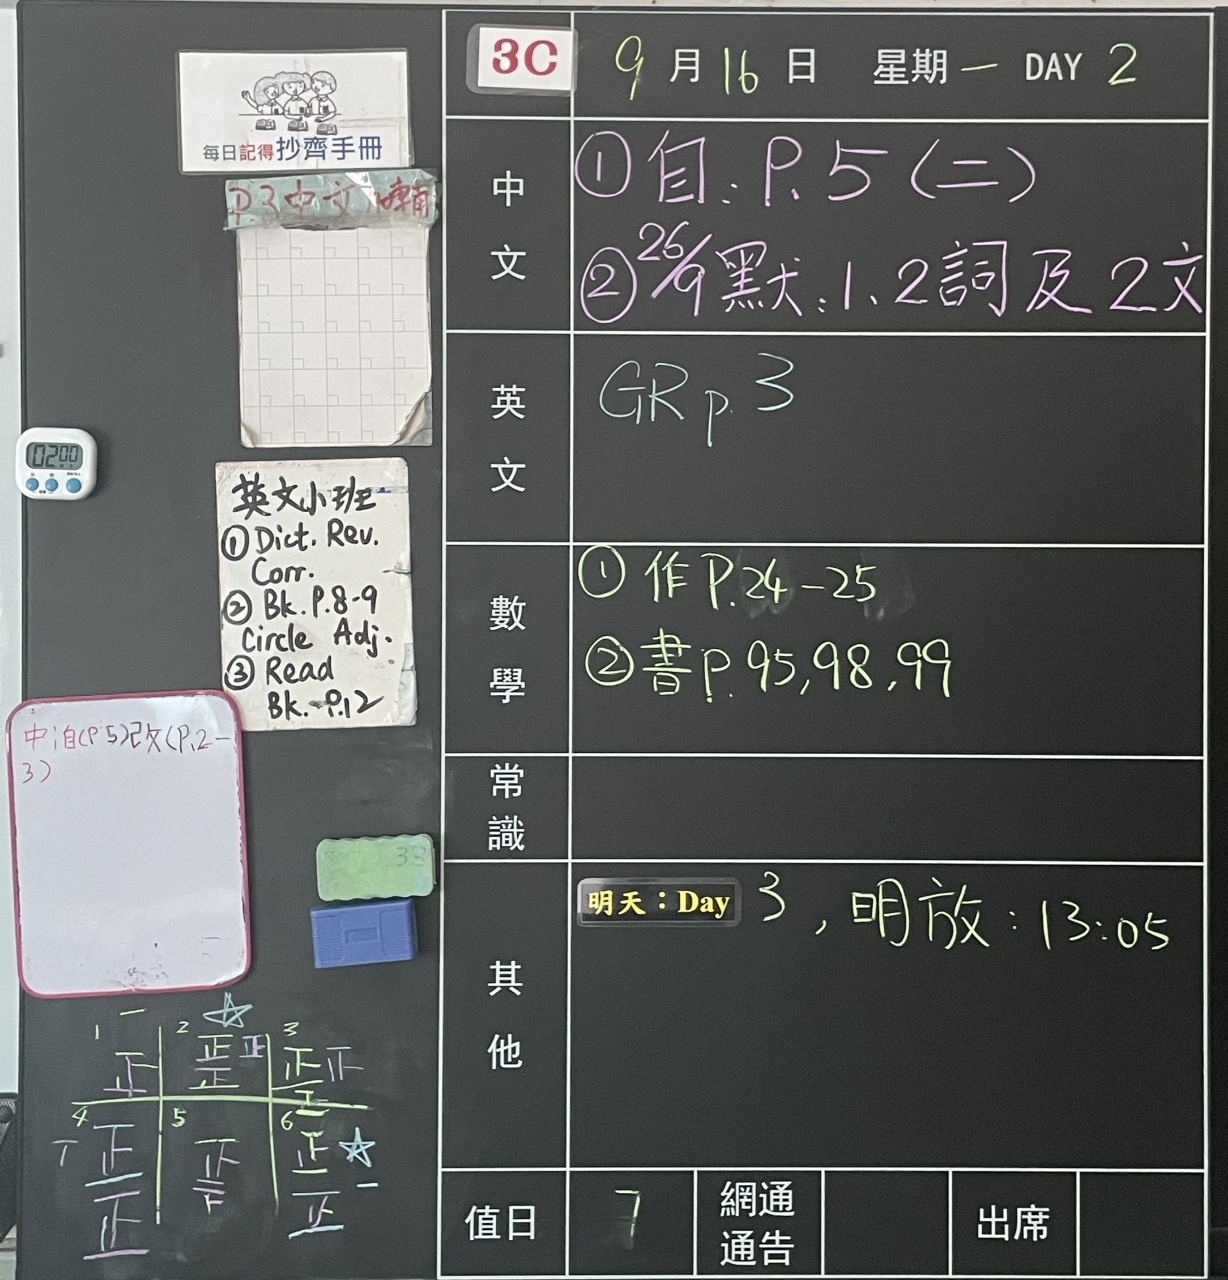 3C
9月16日 星期一 DAY 2
每日記得抄齊手冊
P.3中文 輔
中文
①自:P.5(二)
②26/9默:1、2詞及2文
英文
GR p.3
02:00
英文小班
①Dict. Rev.
Corr.
②Bk.P.8-9
Circle Adj.
③Read
Bk. P.12
數學
①作P.24-25
②書P.95,98,99
中自(P.5)改(P.2-
3)
常識
33
其他
明天:Day 3,明放:13:05
1 一 正
2 正 正 正
3 正 正 正
4 正 正
5 正
6 正 一 正
值日 7 網通通告 出席